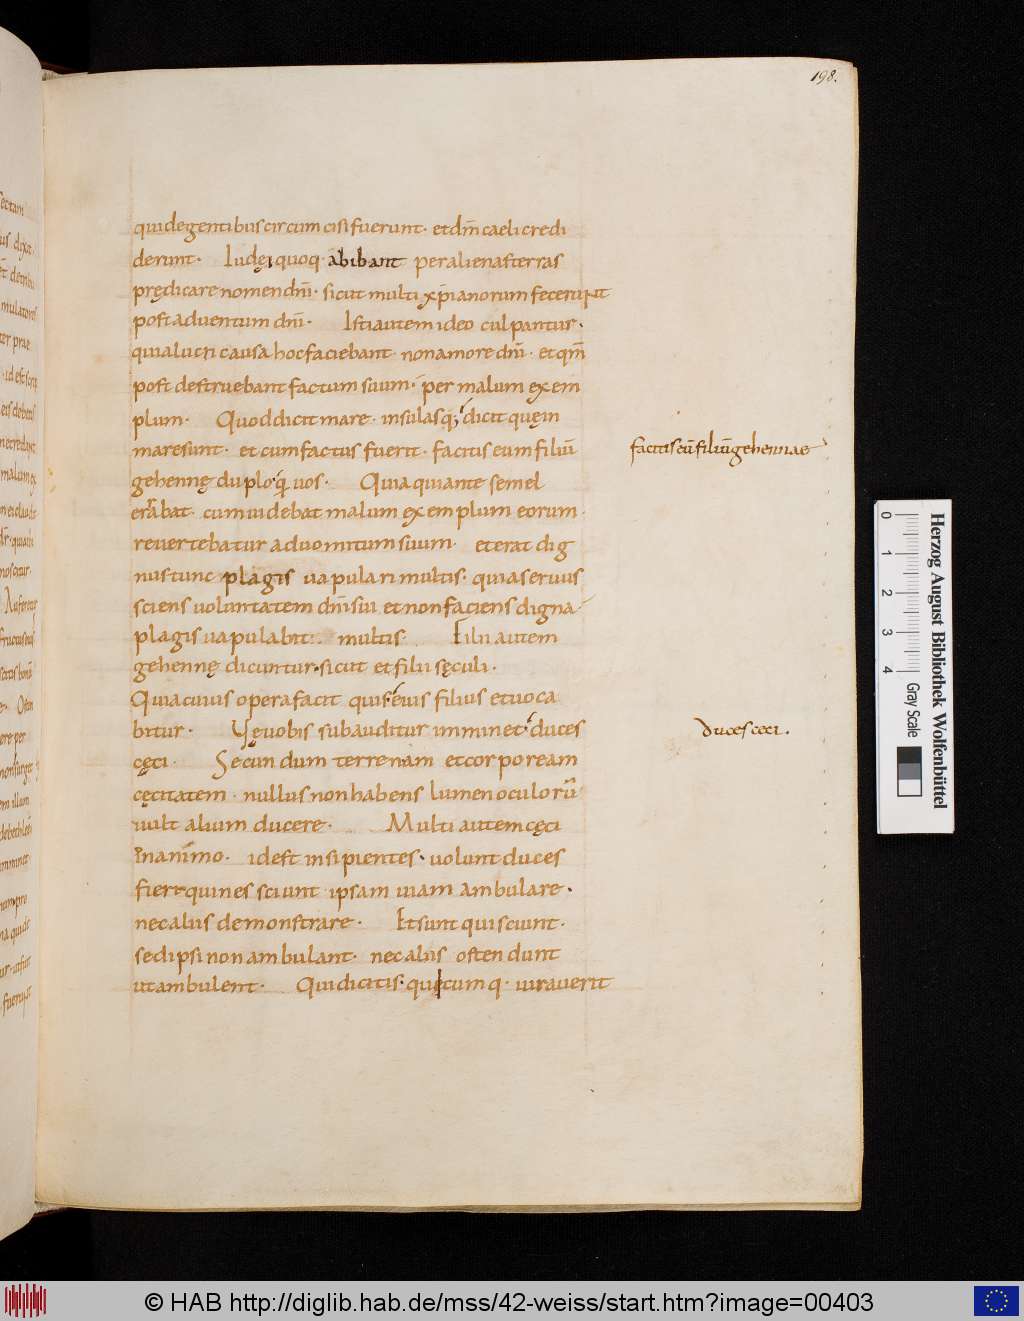 198.
qui de gentibus circumcisi fuerunt· et dm̄ caeli credi
derunt· Iudęi quoq· abibant per alienas terras
prędicare nomen dni̅· sicut multi xp̄ianorum fecerunt
post aduentum dni̅· Isti autem ideo culpantur·
quia lucri causa hoc faciebant· non amore dni̅· et qm̅
post destruebant factum suum· per malum exem
plum· Quod dicit mare· insulasq; dicit quę in
mare sunt· et cum factus fuerit· facitis eum filiū
gehennę duplo q̇ uos· Quia qui ante semel
errabat· cum uidebat malum exemplum eorum·
reuertebatur ad uomitum suum· et erat dig
nus tunc plagis uapulari multis· quia seruus
sciens uoluntatem dni̅ sui et non faciens digna·
plagis uapulabit· multis· Filii autem
gehennę dicuntur· sicut et filii sęculi·
Quia cuius opera facit quis· eius filius et uoca
bitur· Vę uobis subauditur imminet· duces
cęci· Secundum terrenam et corpoream
cęcitatem· nullus non habens lumen oculorū
uult alium ducere· Multi autem cęci
in animo· id est insipientes· uolunt duces
fiere qui nesciunt ipsam uiam ambulare·
nec aliis demonstrare· Et sunt qui sciunt·
sed ipsi non ambulant· nec aliis ostendunt
ut ambulent· Qui dicitis· quicumq· iurauerit
facitis eū filiū gehennae
duces ceci.
Herzog August Bibliothek Wolfenbüttel
0 1 2 3 4 Gray Scale
© HAB http://diglib.hab.de/mss/42-weiss/start.htm?image=00403